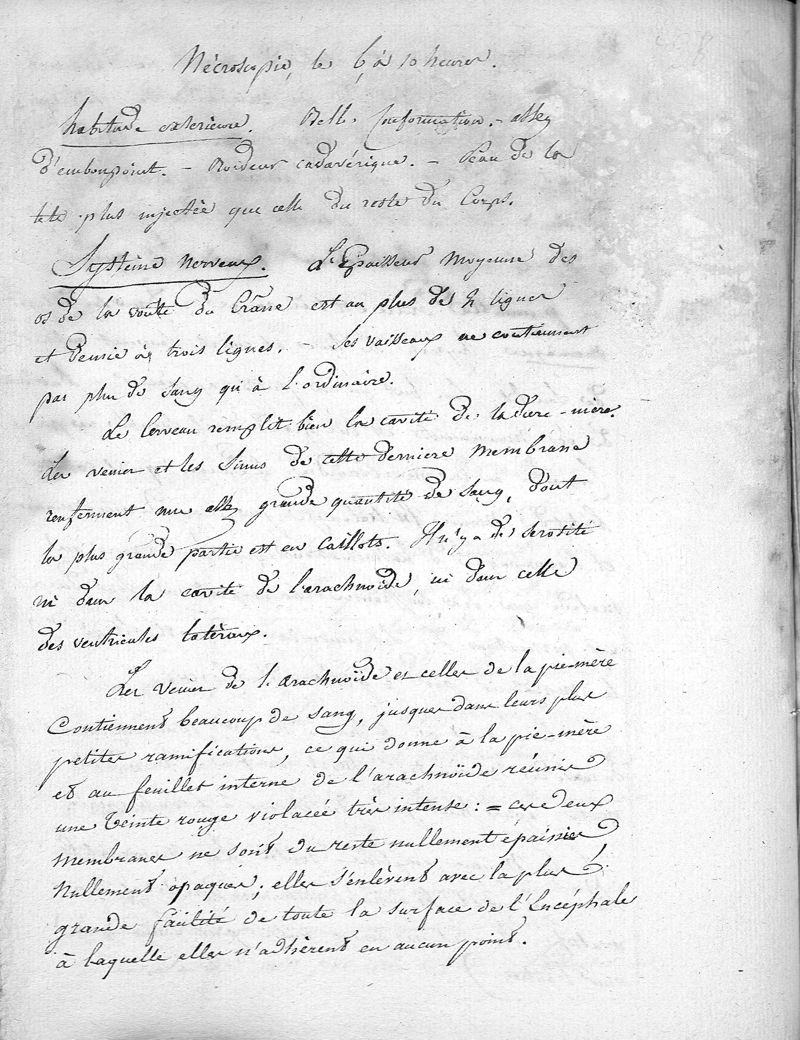 Nécroscopie, le 6, à 10 heures.
habitude exterieure. Belle Conformation. - assez
d'embonpoint. - Roideur cadavérique. - Peau de la
tete plus injectée que celle du reste du Corps.
Système nerveux. L'Epaisseur moyenne des
os de la voute du Crâne est au plus de 2 lignes
et demie à trois lignes. - Ses vaisseaux ne contiennent
pas plus de sang qu'à l'ordinaire.
Le Cerveau remplit bien la cavité de la dure-mère.
Les veines et les Sinus de cette derniere membrane
renferment une assez grande quantité de sang, dont
la plus grande partie est en caillots. Il n'y a de serosité
ni dans la cavité de l'arachnoïde, ni dans celle
des ventricules latéraux.
Les veines de l'arachnoïde et celles de la pie-mère
Contiennent beaucoup de sang, jusques dans leurs plus
petites ramifications, ce qui donne à la pie-mère
et au feuillet interne de l'arachnoïde réunis
une teinte rouge violacée très intense : = ces deux
membranes ne sont du reste nullement épaissies
Nullement opaques; elles s'enlèvent avec la plus
grande facilité de toute la surface de l'Encéphale
à laquelle elles n'adhèrent en aucun point.